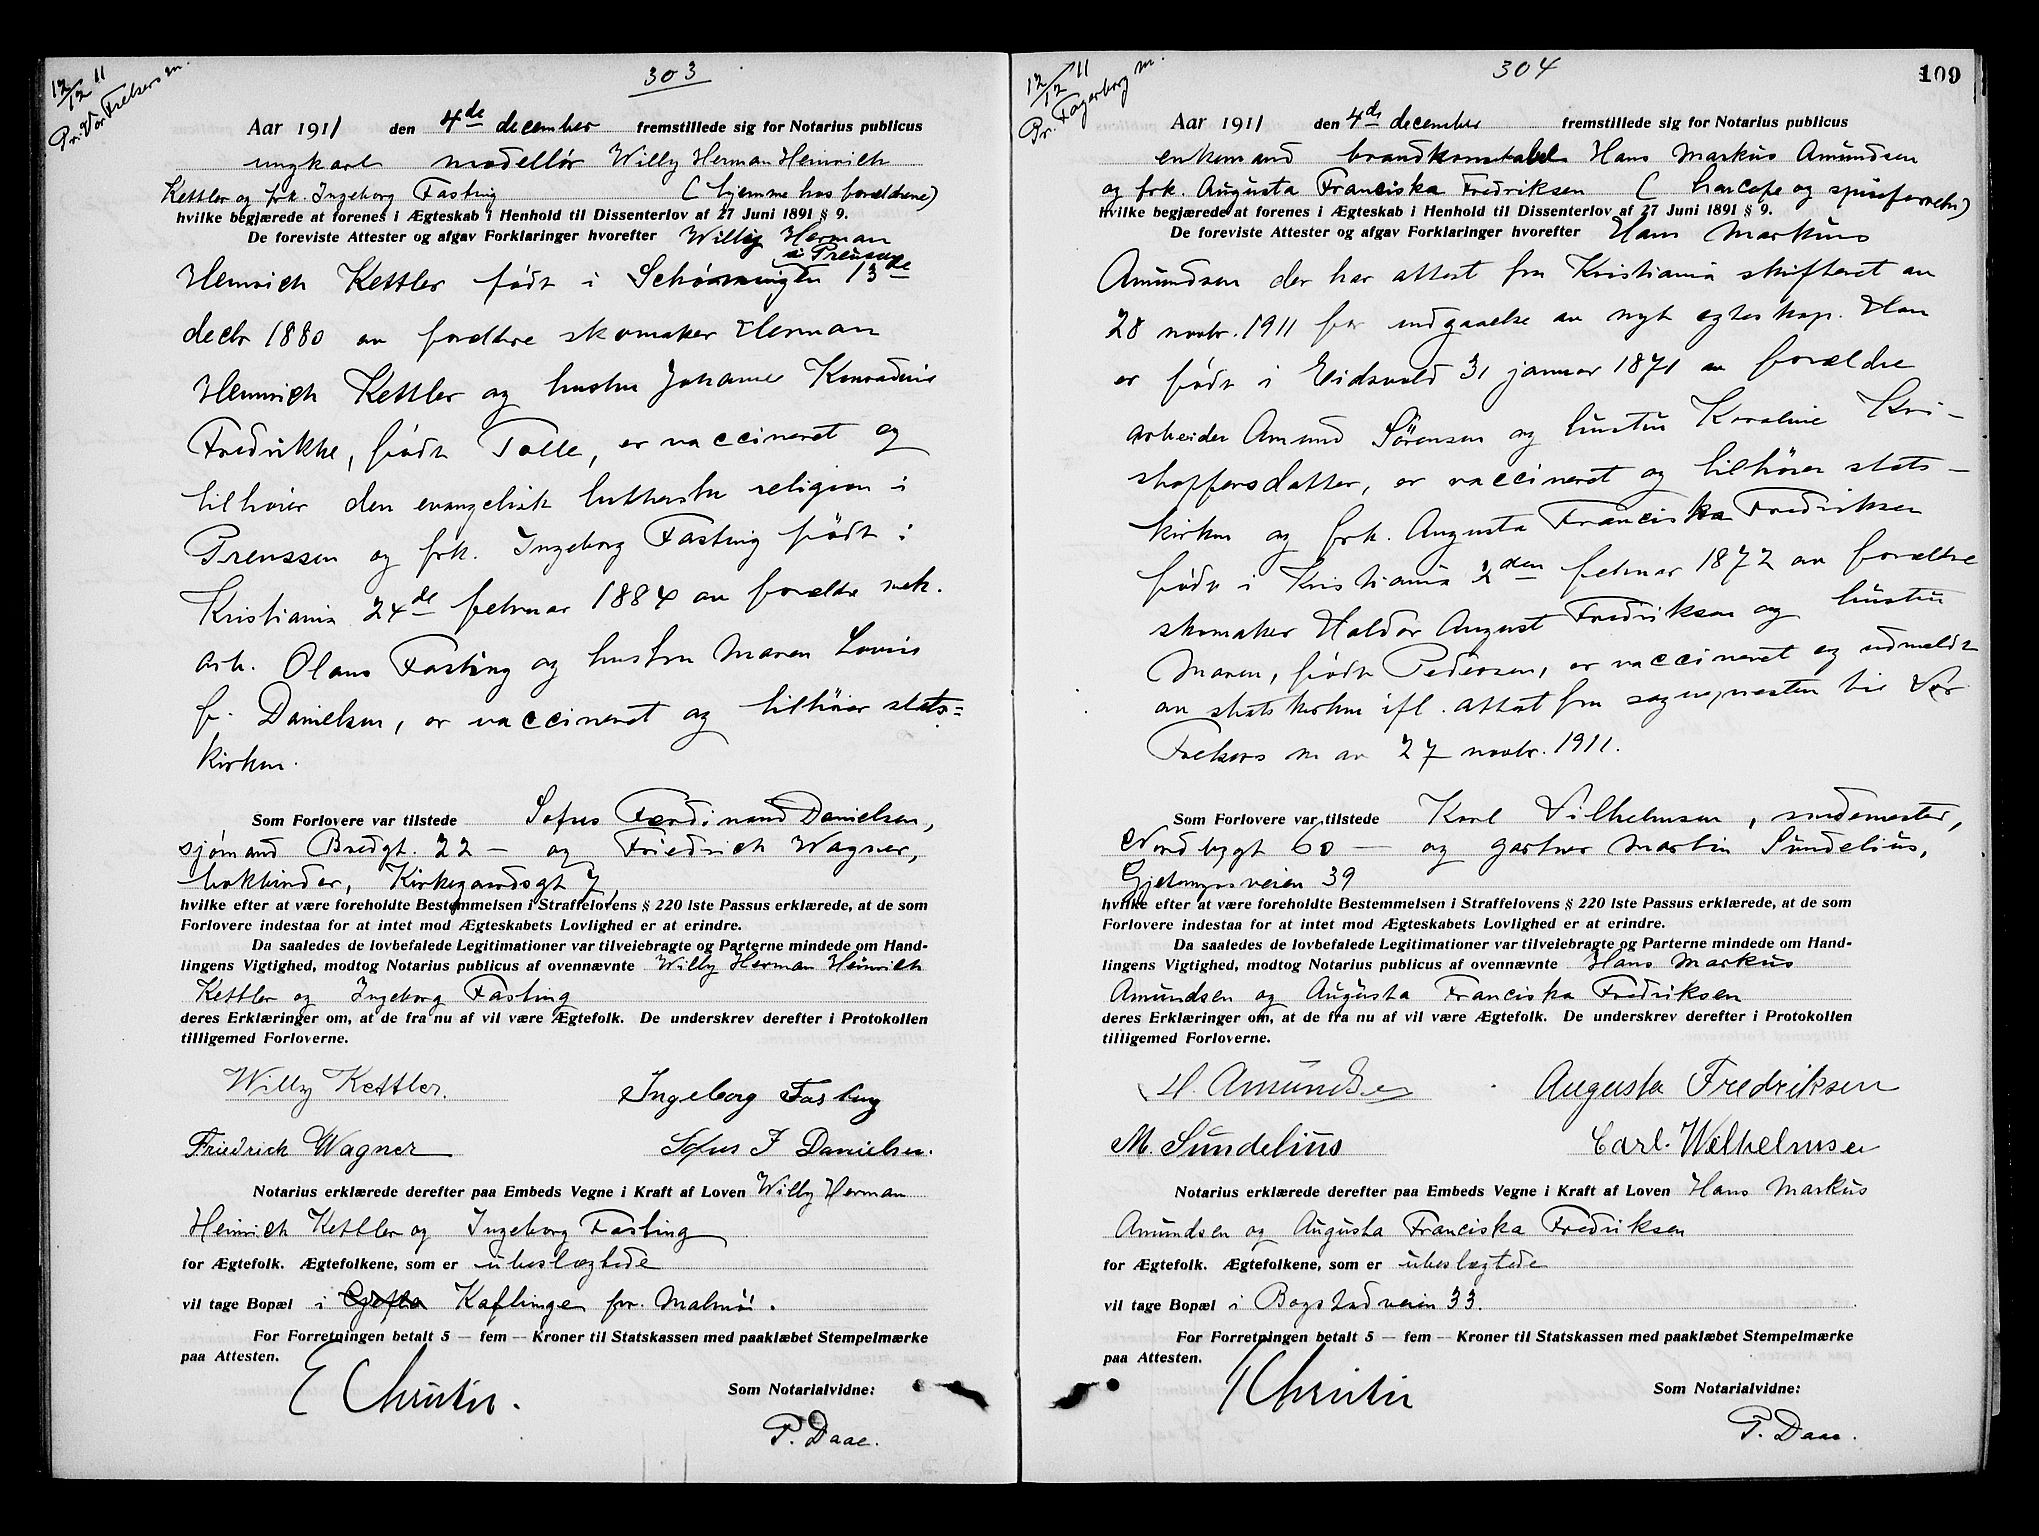 12/12 11
Pr. Vor Frelsers m.
303
Aar 1911 den 4de december fremstillede sig for Notarius publicus
ungkarl modellør Willy Herman Heinrich
Kettler og frk. Ingeborg Fasting (hjemme hos forældrene)
hvilke begjærede at forenes i Ægteskab i Henhold til Dissenterlov af 27 Juni 1891 § 9.
De foreviste Attester og afgav Forklaringer hvorefter Willy Herman
i Preussen
Heinrich Kettler født i 13de
decbr 1880 av forældre skomaker Herman
Heinrich Kettler og hustru Johanne
Fredrikke, født Tolle, er vaccineret og
tilhører den evangelisk lutherske religion i
Preussen og frk. Ingeborg Fasting født i
Kristiania 24de februar 1884 av forældre mek.
arb. Olaus Fasting og hustru Maren Lovise
f. Danielsen, er vaccineret og tilhører stats=
kirken.
Som Forlovere var tilstede Sofus Ferdinand Danielsen,
sjømand Bredgt. 22 — og Friedrich Wagner,
bokbinder, Kirkegaardsgt 7,
hvilke efter at være foreholdte Bestemmelsen i Straffelovens § 220 1ste Passus erklærede, at de som
Forlovere indestaa for at intet mod Ægteskabets Lovlighed er at erindre.
Da saaledes de lovbefalede Legitimationer var tilveiebragte og Parterne mindede om Hand-
lingens Vigtighed, modtog Notarius publicus af ovennævnte Willy Herman Heinrich
Kettler og Ingeborg Fasting
deres Erklæringer om, at de fra nu af vil være Ægtefolk. De underskrev derefter i Protokollen
tilligemed Forloverne.
Willy Kettler. Ingeborg Fasting
Friedrich Wagner Sofus F Danielsen.
Notarius erklærede derefter paa Embeds Vegne i Kraft af Loven Willy Herman
Heinrich Kettler og Ingeborg Fasting
for Ægtefolk. Ægtefolkene, som er ubeslægtede
vil tage Bopæl i Kaflinge pr. Malmö.
For Forretningen betalt 5 — fem — Kroner til Statskassen med paaklæbet Stempelmærke
paa Attesten.
E Christie.
Som Notarialvidne:
P. Daae.
12/12 11
Pr. Fagerborg m.
304
109
Aar 1911 den 4de december fremstillede sig for Notarius publicus
enkemand brandkonstabel Hans Markus Amundsen
og frk. Augusta Franciska Fredriksen ( har cafe og spiseforretn)
hvilke begjærede at forenes i Ægteskab i Henhold til Dissenterlov af 27 Juni 1891 § 9.
De foreviste Attester og afgav Forklaringer hvorefter Hans Markus
Amundsen der har attest fra Kristiania skifteret av
28 novbr. 1911 for indgaaelse av nyt egteskap. Han
er født i Eidsvold 31 januar 1871 av forældre
arbeider Amund Sörensen og hustru Karoline Kri-
stoffersdatter, er vaccineret og tilhører stats-
kirken og frk. Augusta Franciska Fredriksen
født i Kristiania 2den februar 1872 av forældre
skomaker Haldor August Fredriksen og hustru
Maren, født Pedersen, er vaccineret og udmeldt
av statskirken ifl. attest fra sognepresten til Vor
Frelsers m av 27 novbr. 1911.
Som Forlovere var tilstede Karl Vilhelmsen, smedemester,
Nordbygt 60 — og gartner Martin Sundelius,
39
hvilke efter at være foreholdte Bestemmelsen i Straffelovens § 220 1ste Passus erklærede, at de som
Forlovere indestaa for at intet mod Ægteskabets Lovlighed er at erindre.
Da saaledes de lovbefalede Legitimationer var tilveiebragte og Parterne mindede om Hand-
lingens Vigtighed, modtog Notarius publicus af ovennævnte Hans Markus
Amundsen og Augusta Franciska Fredriksen
deres Erklæringer om, at de fra nu af vil være Ægtefolk. De underskrev derefter i Protokollen
tilligemed Forloverne.
H. Amundsen Augusta Fredriksen
M. Sundelius Carl. Wilhelmsen
Notarius erklærede derefter paa Embeds Vegne i Kraft af Loven Hans Markus
Amundsen og Augusta Franciska Fredriksen
for Ægtefolk. Ægtefolkene, som er ubeslægtede
vil tage Bopæl i Bogstadveien 33.
For Forretningen betalt 5 — fem — Kroner til Statskassen med paaklæbet Stempelmærke
paa Attesten.
Christie
Som Notarialvidne:
P. Daae.